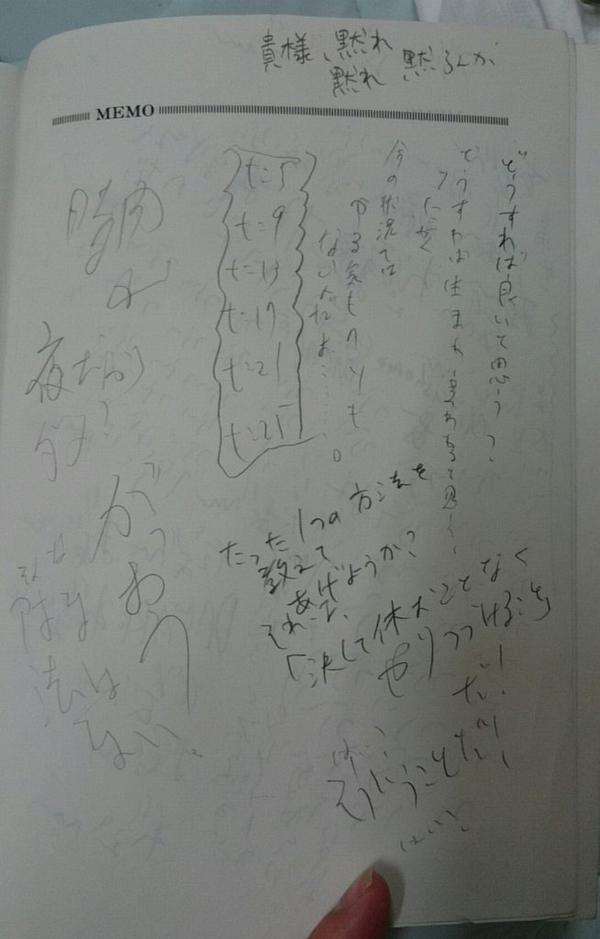 貴様、黙れ
黙れ 黙るんが
MEMO
どうすれば良いて思う?
どうすれば生まれ変われると思う
とにかく
今の状況では
やる気もクソも
ないんだよ……。
t=5
t=9
t=13
t=17
t=21
t=25
たった1つの方法を
教えて
あげようか?
それは、
「決して休むことなく
やりつづける
だ!
はい?
そういうことだ!
はい?
が
夜だから
ダメ?
がっおり
方法は
ない。